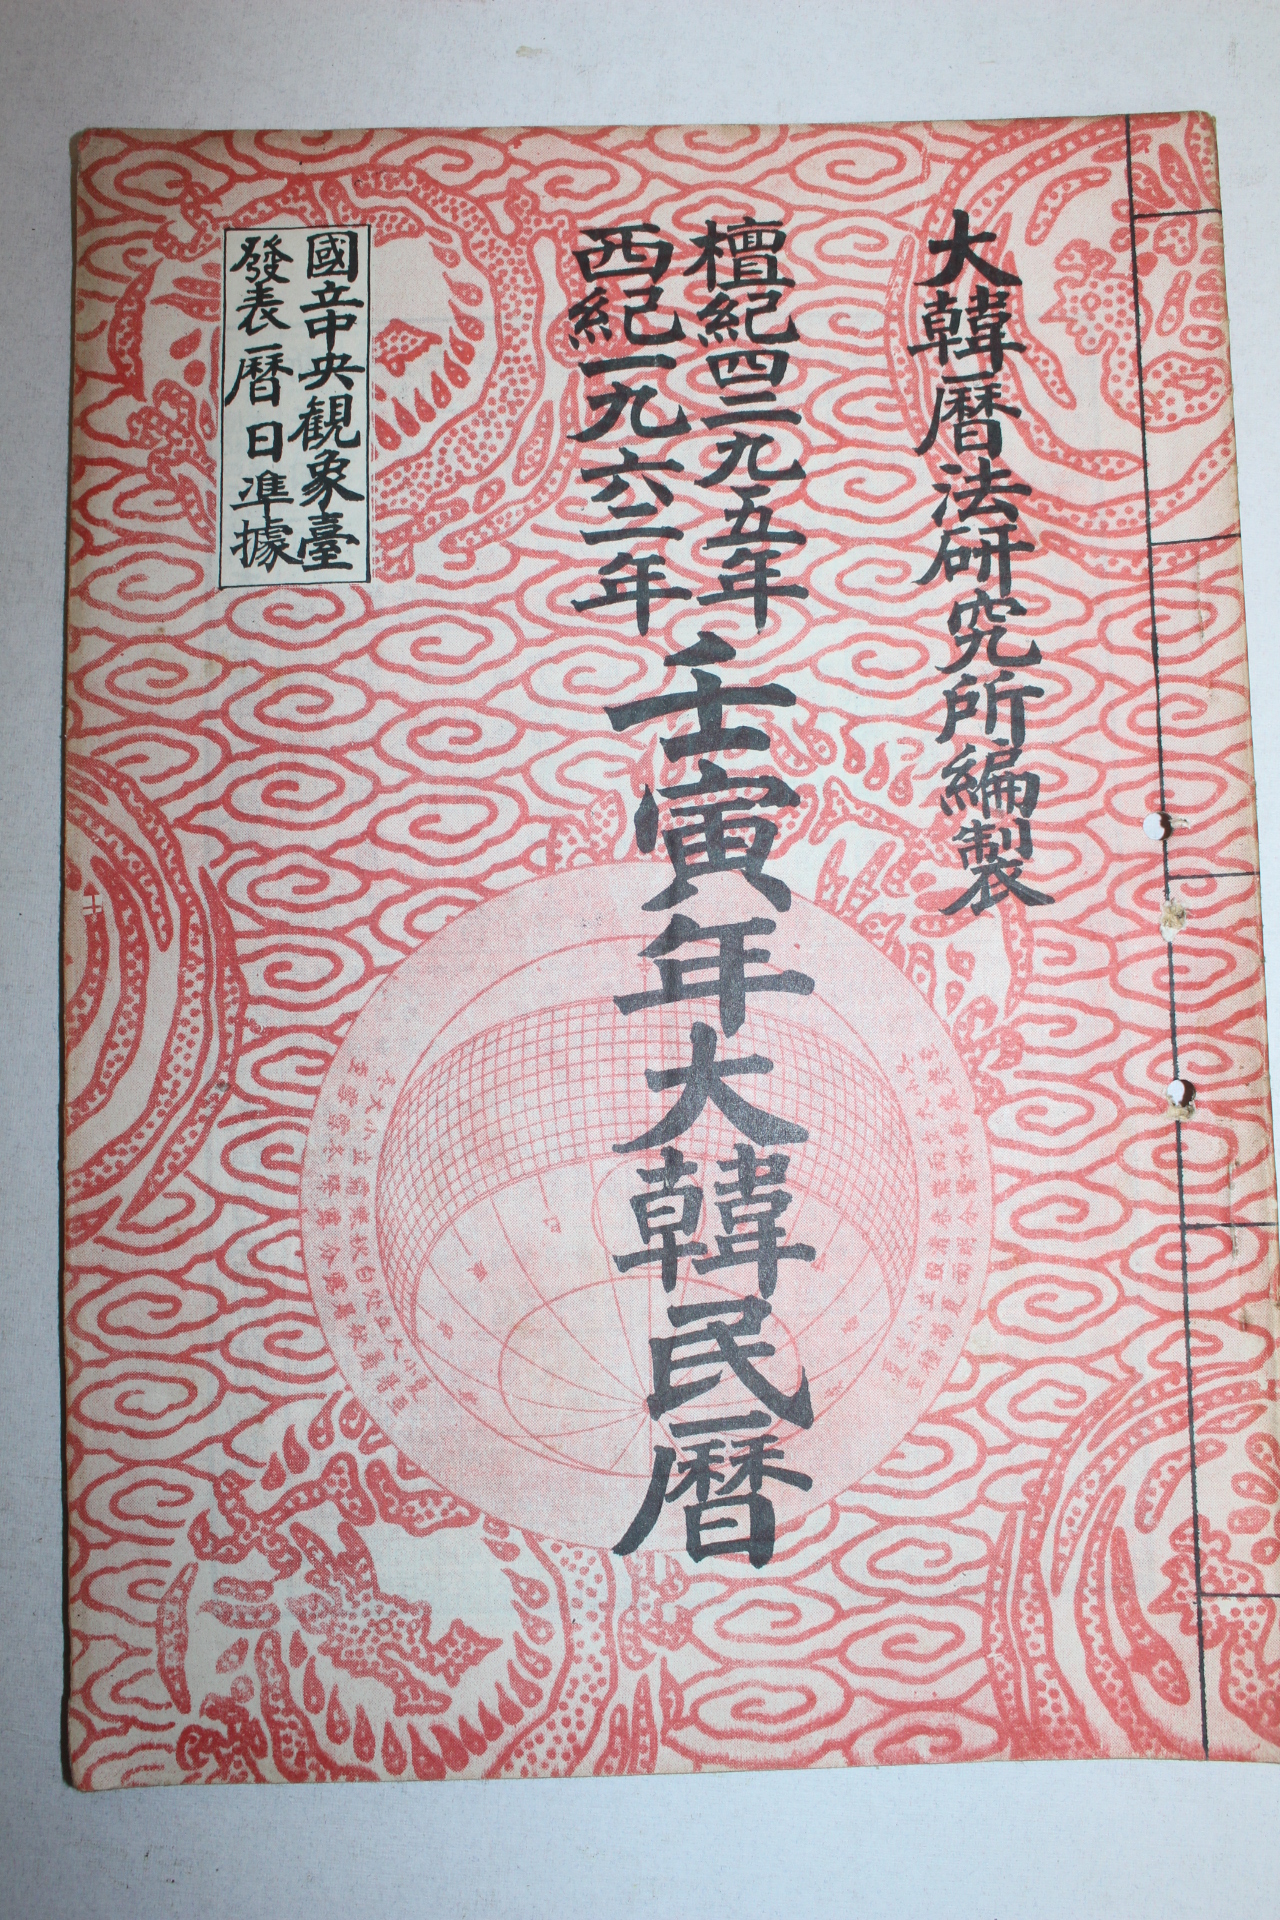 大韓曆法研究所編製
檀紀四二九五年
西紀一九六二年
壬寅年大韓民曆
國立中央観象臺
發表曆日準據